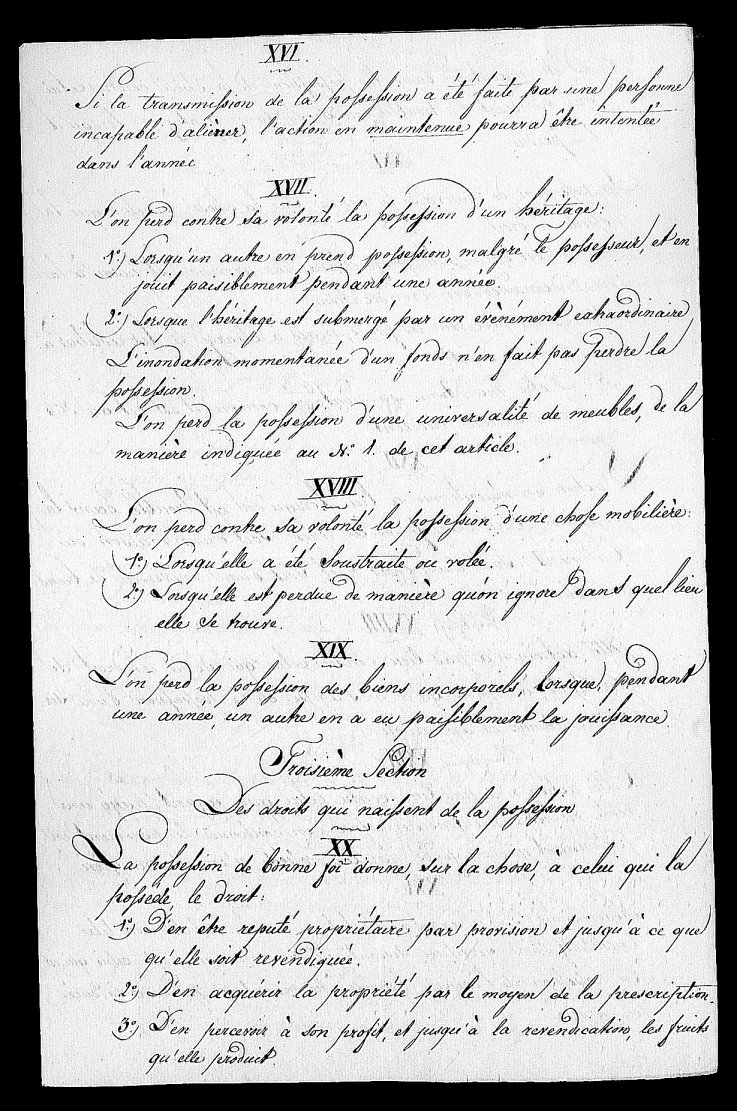 XVI.
Si la transmission de la possession a été faite par une personne
incapable d'aliéner, l'action en maintenue pourra être intentée
dans l'année
XVII.
L'on perd contre sa volonté la possession d'un héritage:
1º) Lorsqu'un autre en prend possession, malgré le possesseur, et en
jouit paisiblement pendant une année.
2º) Lorsque l'héritage est submergé par un évènément extraordinaire,
L'inondation momentanée d'un fonds n'en fait pas perdre la
possession.
L'on perd la possession d'une universalité de meubles, de la
manière indiquée au Nº 1. de cet article.
XVIII.
L'on perd contre sa volonté, la possession d'une chose mobilière:
1º) Lorsqu'elle a été soustraite ou volée.
2º) Lorsqu'elle est perdue de manière qu'on ignore dans quel lieu
elle se trouve.
XIX
L'on perd la possession des biens incorporels, lorsque, pendant
une année, un autre en a eu paisiblement la jouissance.
Troisième Section
Des droits qui naissent de la possession
XX
La possession de bonne foi donne, sur la chose, à celui qui la
possède, le droit:
1º) D'en être reputé propriétaire par provision et jusqu'à ce que
qu'elle soit revendiquée.
2º) D'en acquérir la propriété par le moyen de la prescription.
3º) D'en percevoir à son profit, et jusqu'à la revendication, les fruits
qu'elle produit.